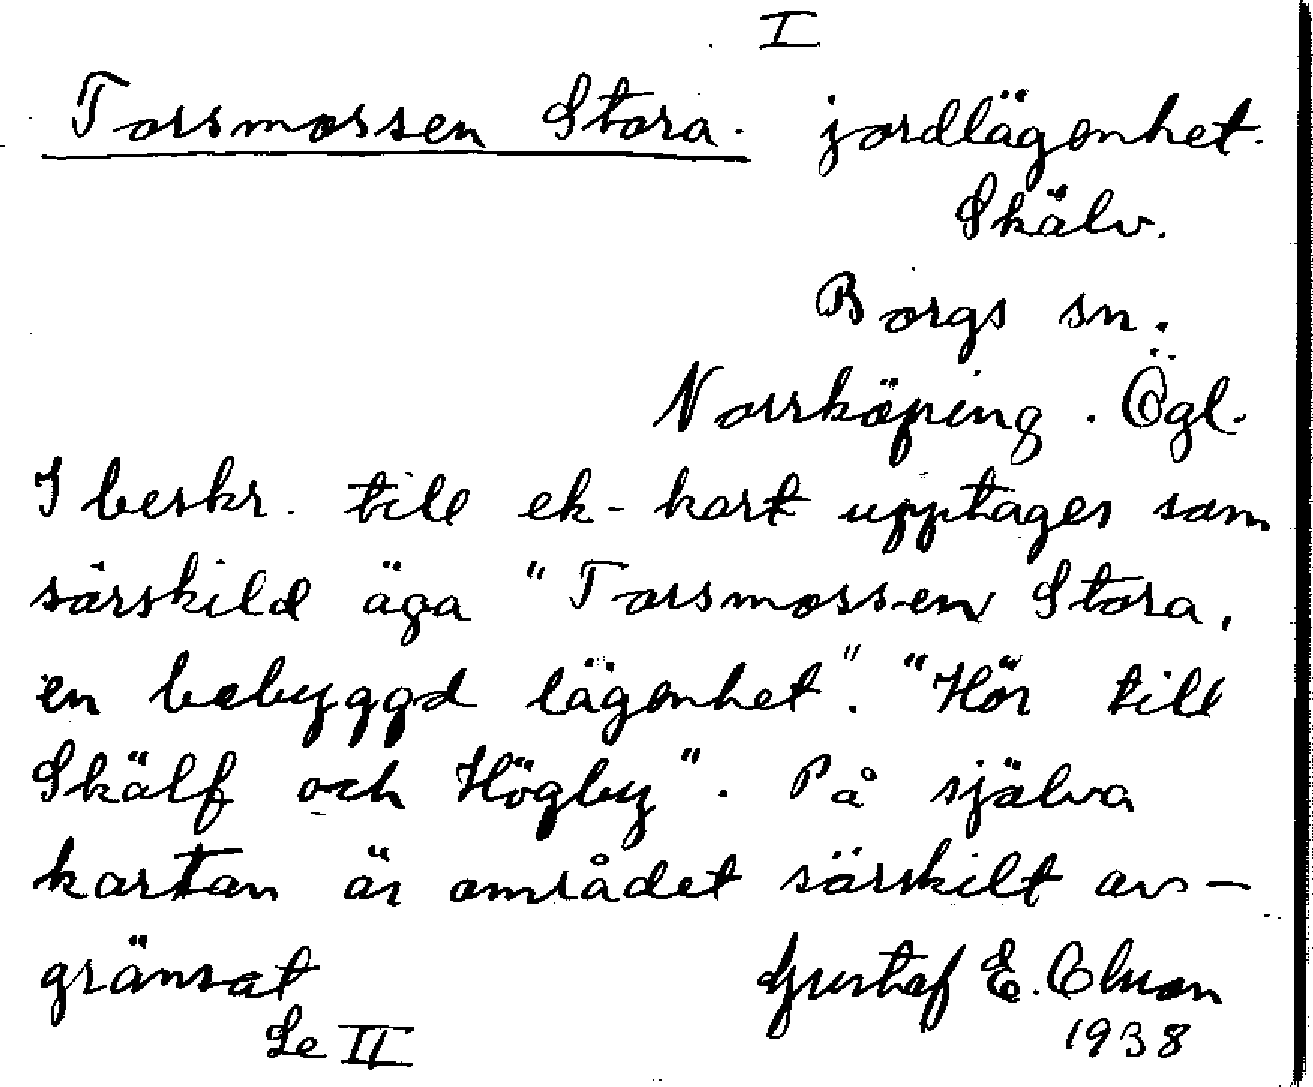 I
Torsmossen Stora. jordlägenhet.
Skälv.
Borgs sn.
Norrköping. Ögl.
I beskr. till ek-kart upptages som
särskild äga "Torsmossen Stora,
en bebyggd lägenhet". "Hör till
Skälf och Högby". På själva
kartan är området särskilt av-
gränsat
Gustaf E. Olsson
Se II
1938